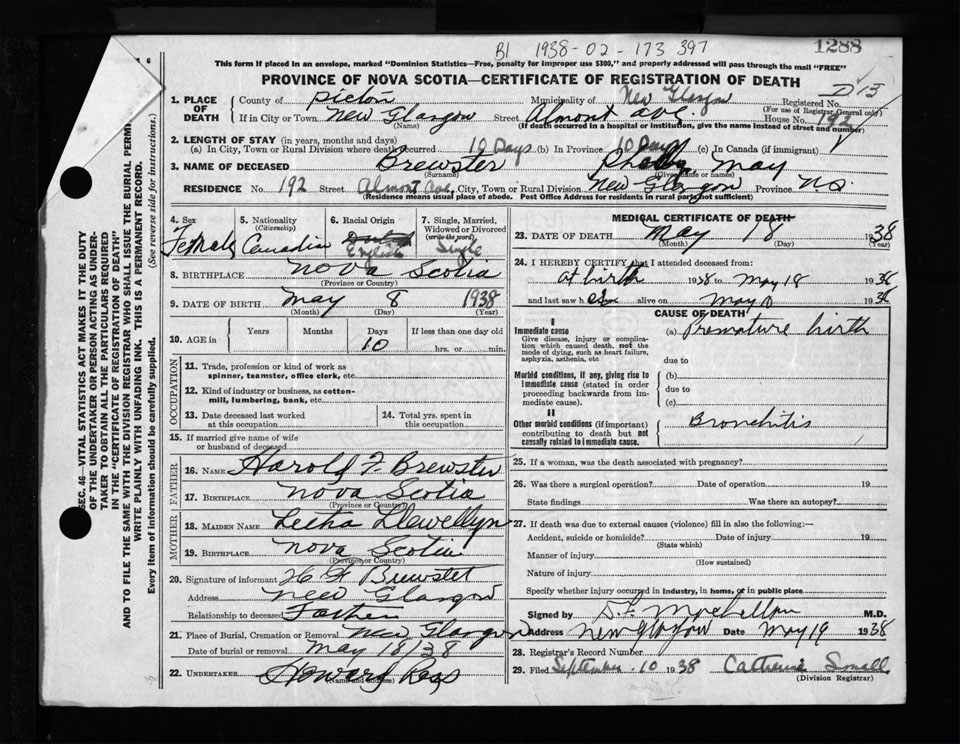 B1 1938-02-173 397
1288
This form if placed in an envelope, marked "Dominion Statistics—Free, penalty for improper use $300," and properly addressed will pass through the mail "FREE"
PROVINCE OF NOVA SCOTIA—CERTIFICATE OF REGISTRATION OF DEATH
D 13
1. PLACE OF DEATH County of Pictou Municipality of New Glasgow Registered No.
(For use of Registrar General only)
If in City or Town New Glasgow Street Almont Ave. House No. 192
(Name) (If death occurred in a hospital or institution, give the name instead of street and number)
2. LENGTH OF STAY (in years, months and days)
(a) In City, Town or Rural Division where death occurred 10 Days (b) In Province 10 Days (c) In Canada (if immigrant)
3. NAME OF DECEASED Brewster May
(Surname) (Given name or names)
RESIDENCE No. 192 Street Almont Ave. City, Town or Rural Division New Glasgow Province N.S.
(Residence means usual place of abode. Post Office Address for residents in rural parts not sufficient)
4. Sex 5. Nationality (Citizenship) 6. Racial Origin 7. Single, Married, Widowed or Divorced (write the word)
Female Canadian English Single
8. BIRTHPLACE Nova Scotia
(Province or Country)
9. DATE OF BIRTH May 8 1938
(Month) (Day) (Year)
10. AGE in Years Months Days If less than one day old
10 hrs. or min.
OCCUPATION
11. Trade, profession or kind of work as spinner, teamster, office clerk, etc.
12. Kind of industry or business, as cotton-mill, lumbering, bank, etc.
13. Date deceased last worked at this occupation
14. Total yrs. spent in this occupation
15. If married give name of wife or husband of deceased
FATHER
16. NAME Harold F. Brewster
17. BIRTHPLACE Nova Scotia
(Province or Country)
MOTHER
18. MAIDEN NAME Letha Llewellyn
19. BIRTHPLACE Nova Scotia
(Province or Country)
20. Signature of informant H F Brewster
Address New Glasgow
Relationship to deceased Father
21. Place of Burial, Cremation or Removal New Glasgow
Date of burial or removal May 18/38
22. UNDERTAKER Howard Ross
(Name and address)
MEDICAL CERTIFICATE OF DEATH
23. DATE OF DEATH May 18 1938
(Month) (Day) (Year)
24. I HEREBY CERTIFY that I attended deceased from:
At birth 1938 to May 18 1938
and last saw h er alive on May 1938
CAUSE OF DEATH
I
Immediate cause (a) Premature birth
Give disease, injury or complication which caused death, not the mode of dying, such as heart failure, asphyxia, asthenia, etc.
due to
Morbid conditions, if any, giving rise to immediate cause (stated in order proceeding backwards from immediate cause).
(b)
due to
(c)
II
Other morbid conditions (if important) contributing to death but not causally related to immediate cause.
Bronchitis
25. If a woman, was the death associated with pregnancy?
26. Was there a surgical operation? Date of operation 19
State findings Was there an autopsy?
27. If death was due to external causes (violence) fill in also the following:—
Accident, suicide or homicide? Date of injury 19
(State which)
Manner of injury
(How sustained)
Nature of injury
Specify whether injury occurred in Industry, in home, or in public place
Signed by M.D.
Address New Glasgow Date May 19 1938
28. Registrar's Record Number
29. Filed September 10 1938 Catherine Small
(Division Registrar)
SEC. 46—VITAL STATISTICS ACT MAKES IT THE DUTY
OF THE UNDERTAKER OR PERSON ACTING AS UNDER-
TAKER TO OBTAIN ALL THE PARTICULARS REQUIRED
IN THE "CERTIFICATE OF REGISTRATION OF DEATH"
AND TO FILE THE SAME WITH THE DIVISION REGISTRAR WHO SHALL ISSUE THE BURIAL PERM
WRITE PLAINLY WITH UNFADING INK. THIS IS A PERMANENT RECORD.
Every item of information should be carefully supplied. (See reverse side for instructions.)